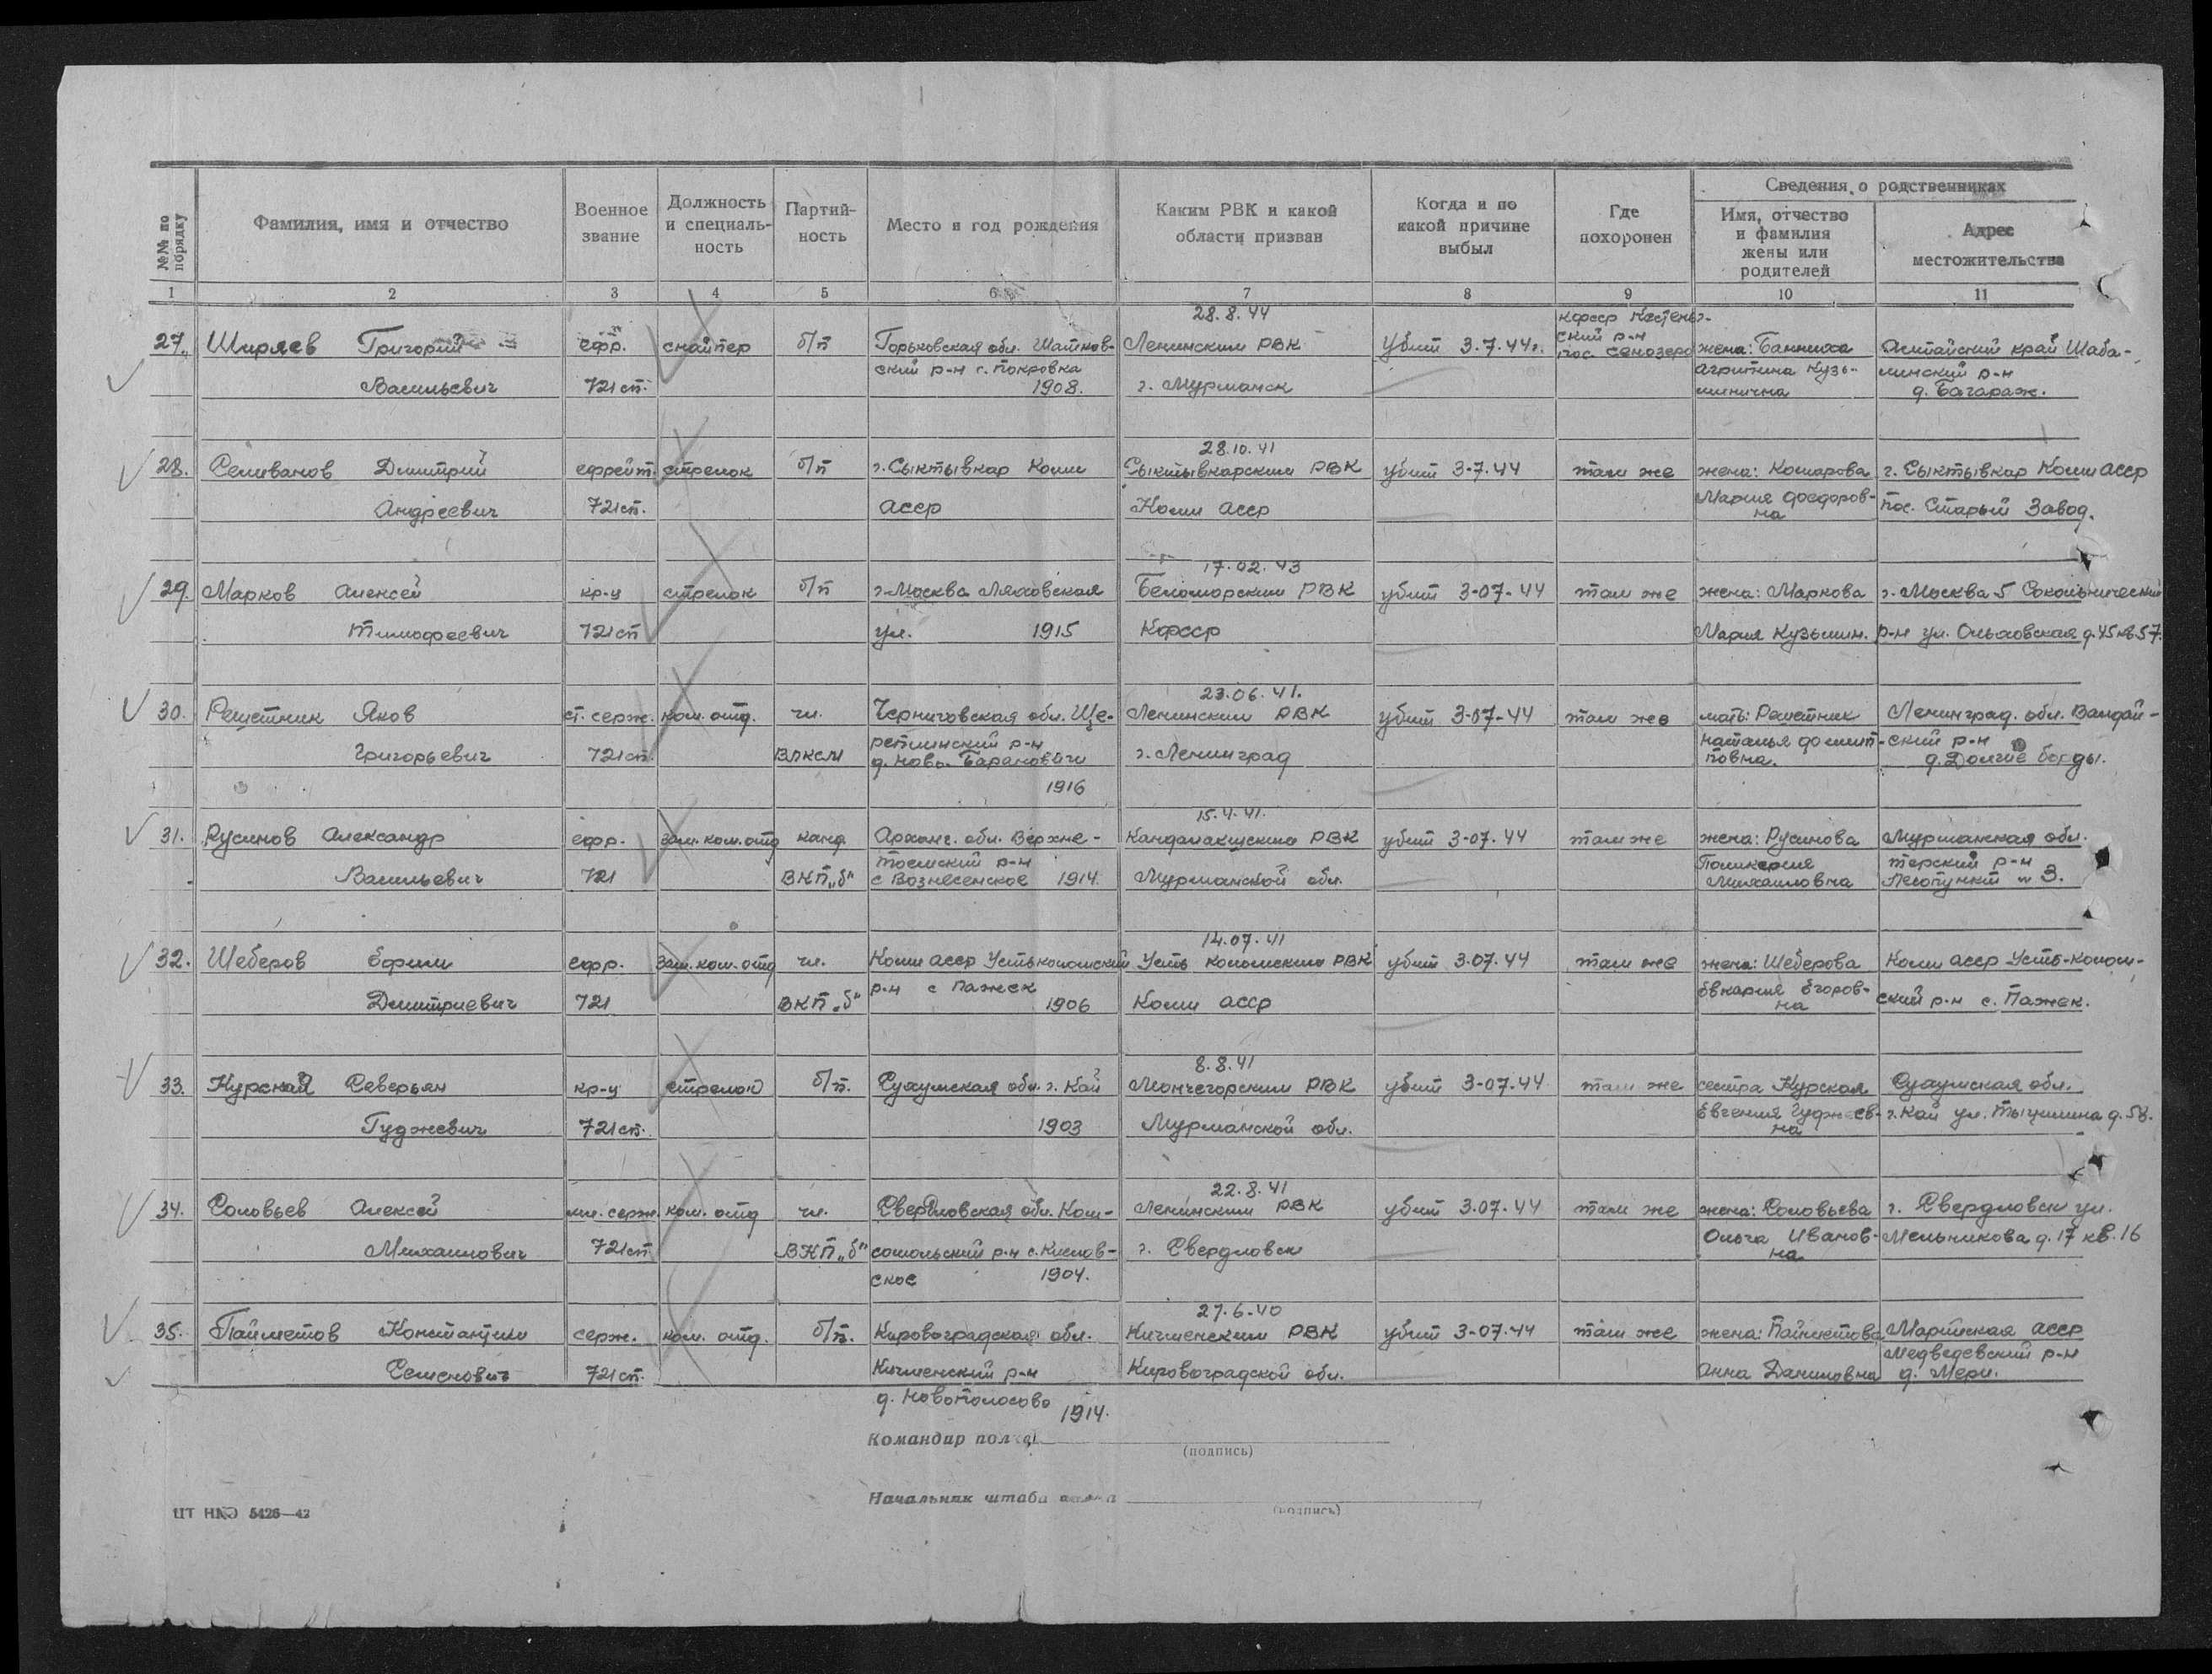 №№ по порядку
Фамилия, имя и отчество
Военное звание
Должность и специаль-ность
Партий-ность
Место и год рождения
Каким РВК и какой области призван
Когда и по какой причине выбыл
Где похоронен
Сведения о родственниках
Имя, отчество и фамилия жены или родителей
Адрес местожительства
1 2 3 4 5 6 7 8 9 10 11
28.8.44 кфсср Кестеньг-
27. Ширяев Григорий ефр. снайпер б/п Горьковская обл. Шатков- Ленинским РВК Убит 3.7.44г. ский р-н пос. Сенозеро жена: Банниха Алтайский край Шаба-
Васильевич 721 сп. ский р-н с. Покровка 1908. г. Мурманск Агрипина Кузь-минична линский р-н д. Багараж.
28.10.41
28. Селиванов Димитрий ефрейт. стрелок б/п г. Сыктывкар Коми Сыктывкарским РВК убит 3-7.44 там же жена: Комарова г. Сыктывкар Коми АССР
Андреевич 721 сп. АССР Коми АССР Мария Федоров-на пос. Старый Завод.
17.02.43
29. Марков Алексей кр-ц стрелок б/п г. Москва Ляховская Беломорским РВК убит 3-07-44 там же жена: Маркова г. Москва 5 Сокольнический
Тимофеевич 721 сп ул. 1915 Кфсср Мария Кузьмин. р-н ул. Ольховская д. 45 кв 57.
23.06.41.
30. Решетник Яков ст. серж. ком. отд. чл. Черниговская обл. Ще- Ленинским РВК убит 3-07-44 там же мать: Решетник Ленинград. обл. Валдай-
Григорьевич 721 сп. ВЛКСМ р-н д. Ново. Барановичи г. Ленинград Наталья повна. ский р-н д. Долгие боды.
1916
15.4.41.
31. Русинов Александр ефр. зам. ком. отд канд Арханг. обл. Верхне- Кандалакшским РВК убит 3-07.44 там же жена: Русинова Мурманская обл.
Васильевич 721 ВКП„б" тоемский р-н с Вознесенское 1914. Мурманской обл. Михайловна терский р-н Лесопункт № 3.
14.07.41
32. Шеберов Ефим ефр. зам. ком. отд чл. Коми АССР Устьколомский Усть коломским РВК убит 3.07.44 там же жена: Шеберова Коми АССР Усть-колом-
Димитриевич 721 ВКП„б" р-н с Пажеск 1906 Коми АССР Егоров-на ский р-н с. Пажек.
8.8.41
33. Курской Северьян кр-ц стрелок б/п. Сухумская обл. г. Кай Мончегорским РВК убит 3-07.44 там же сестра Курская Сухумская обл.
Гуджевич 721 сп. 1903 Мурманской обл. Евгения Гуджев-на г. Кай ул. д. 58.
22.8.41
34. Соловьев Алексей мл. серж. ком. отд чл. Свердловская обл. Ком- Ленинским РВК убит 3.07.44 там же жена: Соловьева г. Свердловск ул.
Михайлович 721 сп ВКП„б" сомольский р-н с. Кислов- г. Свердловск Ольга Иванов-на Мельникова д. 17 кв. 16
ское 1904.
27.6.40
35. Пайметов Константин серж. ком. отд. б/п. Кировоградская обл. Кичменским РВК убит 3-07.44 там же жена: Пайметова Марийская АССР
Семенович 721 сп. Кичменский р-н Кировоградской обл. Анна Даниловна Медведевский р-н д. Мери.
д. Новополосово 1914.
Командир полка
(подпись)
Начальник штаба полка
(подпись)
ЦТ НКО 5426—42